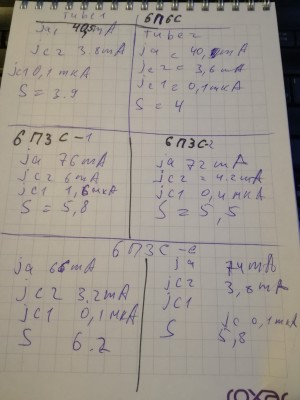 6П6С
tube1
ja 40,5mA
jc2 3.8mA
jc1 0,1 мкА
S = 3.9
tube2
ja = 40,5mA
jc2 = 3,6mA
jc1 = 0,1мкА
S = 4
6П3С-1
ja 76mA
jc2 6mA
jc1 1,6мкА
S = 5,8
6П3С-2
ja 72mA
jc2 = 4.2mA
jc1 0,4мкА
S = 5,5
6П3С-е
ja 66mA
jc2 3,2mA
jc1 0,1мкА
S 6.2
ja 74mA
jc2 3,8mA
jc1
jc 0,1мкА
S 5,8